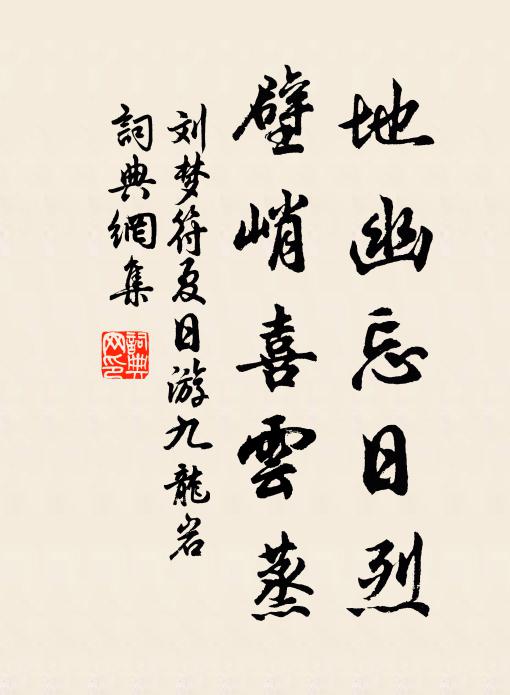 地幽忘日烈
壁峭喜雲蒸
刘梦符夏日游九龍岩
詞典網集
詞典網印